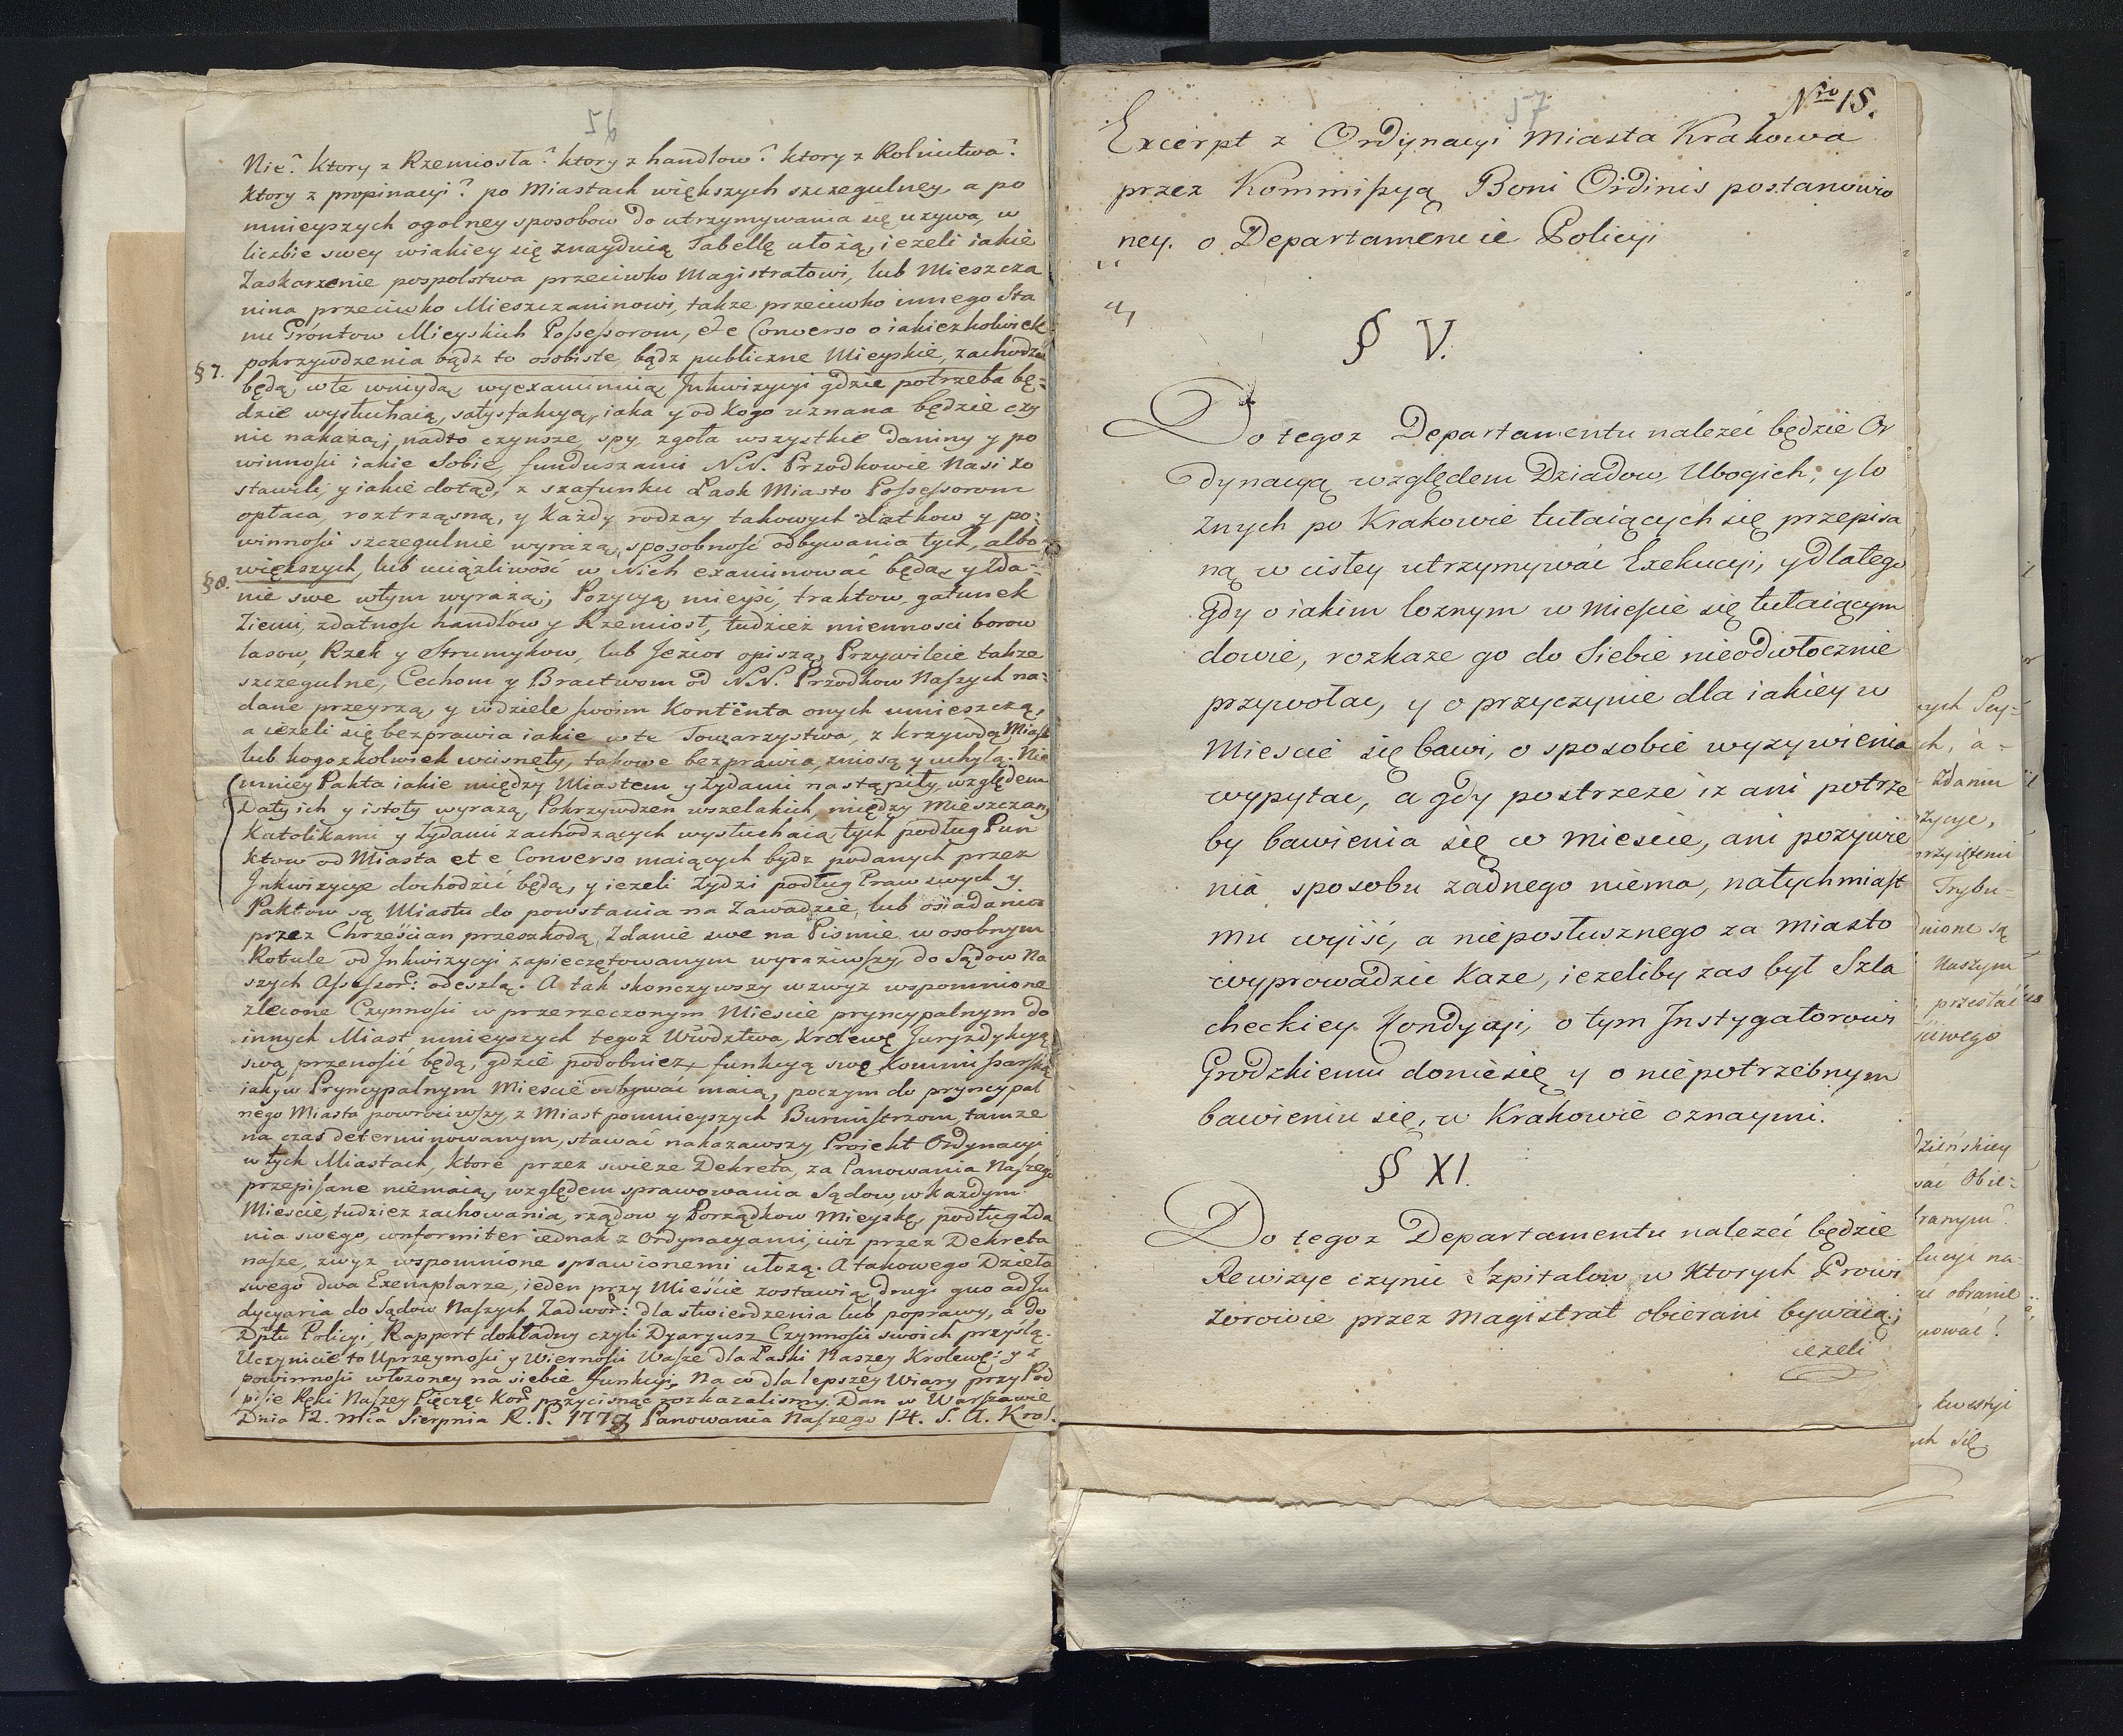 56
Nie? ktory z Rzemiosła? ktory z handlow? ktory z Rolnictwa?
ktory z propinacyi? po Miastach większych szczegulney, a po
mnieyszych ogolney sposobow do utrzymywania się uzywa, w
liczbie swey wiakiey się znayduią Tabellę ułożą, iezeli iakie
Zaskarzenie pospolstwa przeciwko Magistratowi, lub Mieszcza
nina przeciwko Mieszczaninowi, takze przeciwko innego Sta
nu Gróntow Mieyskich Possessorom, et e Converso o iakiezkolwiek
pokrzywdzenia bądz to osobiste, bądz publiczne Mieyskie, zachodzić
§ 7.
będą, w te wniydą, wyexaminuią Jnkwizycyi gdzie potrzeba bę=
dzie wysłuchaią, satysfakcyą, iaka y od kogo uznana będzie czy
nic nakażą; nadto czynsze, spy, zgoła wszystkie daniny y po
winności iakie Sobie, funduszami NN. Przodkowie Nasi zo
stawili y iakie dotąd, z szafunku Łask Miasto Possessorom
opłaca, roztrząsną, y każdy rodzay takowych datkow y po=
winności szczegulnie wyrażą, sposobność odbywania tych, albo
większych, lub uciązliwość w Nich examinować będą y Zda=
§ 8.
nie swe wtym wyrażą; Pozycyą mieysc, traktow, gatunek
Ziemi, zdatność handlow y Rzemiosł, tudzież miennosci borow
lasow, Rzek y Strumykow, lub Jezior opiszą, Przywileie takze
szczegulne, Cechom y Bractwom od NN. Przodkow Naszych na=
dane przeyrzą, y wdziele swoim Kontenta onych umieszczą,
a iezeli się bezprawia iakie w te Towarzystwa, z krzywdą Miast
lub kogozkolwiek wcisnęły, takowe bezprawia zniosą y uchylą. Nie
mniey Pakta iakie między Miastem y Zydami nastąpiły, względem
Daty ich y istoty wyrażą, Pokrzywdzen wszelakich między Mieszczany
Katolikami y Zydami zachodzących wysłuchaią, tych podług Pun
ktow od Miasta et e Converso maiących bydz podanych przez
Jnkwizycye dochodzić będą, y iezeli Zydzi podług Praw swych y
Paktow są Miastu do powstania na Zawadzie, lub osiadaniu
przez Chrześcian przeszkodą, Zdanie swe na Pismie w osobnym
Rotule od Jnkwizycyi zapieczętowanym wyraziwszy, do Sądow Na
szych Assessor: odeszlą. A tak skonczywszy wzwyż wspomnione
zlecone Czynności w przerzeczonym Miescie pryncypalnym do
innych Miast mnieyszych tegoż Wdztwa, Krolewę Juryzdykcyą
swą przenosić będą, gdzie podobniez, funkcyą swę Kommissarską
iak y w Pryncypalnym Miescie odbywać maią, poczym do pryncypal
nego Miasta powrociwszy, z Miast pomnieyszych Burmistrzom, tamze
na czas determinowanym, stawać nakazawszy, Proiekt Ordynacyi
w tych Miastach, Ktore przez swieze Dekreta, za Panowania Naszego
przepisane niemaią, względem sprawowania Sądow, w każdym
Miescie, tudziez zachowania, rządow y Porządkow Mieyskę podług Zda
nia swego, conformiter iednak z Ordynacyami, iuż przez Dekreta
nasze, zwyz wspomnione sprawionemi ułożą. A takowego Dzieła
swego dwa Exemplarze, ieden przy Mieście zostawią, drugi quo ad Ju
dycyaria do Sądow Naszych, Zadwor: dla stwierdzenia lub poprawy, a do
Dptu Policyi, Rapport dokładny czyli Dyaryusz Czynności swoich przyślą.
Uczynicie to Uprzeymości y Wierności Wasze dla Łaski Naszey Krolewę: y z
powinności włożoney na siebie funkcyi. Na co dla lepszey Wiary przy Pod
pisie Ręki Naszey Pięczęc Kor: przycisnąć rozkazalismy. Dan w Warszawie
Dnia 12. Mca Sierpnia R. P. 1778 Panowania Naszego 14. S. A. Krol.
57
Nro 15.
Excerpt z Ordynacyi Miasta Krakowa
przez Kommissyą Boni Ordinis postanowio
ney. o Departamencie Policyi
§ V.
Do tegoz Departamentu nalezeć będzie Or
dynacyą względem Dziadow, Ubogich, y lo
znych po Krakowie tułaiących się przepisa
ną w cisłey utrzymywać Exekucyi, y dlatego
gdy o iakim loznym w Miescie się tułaiącym
dowie, rozkaze go do Siebie nieodwłocznie
przywołac, y o przyczynie dla iakiey w
Miescie się bawi, o sposobie wyzywienia
wypytac, a gdy postrzeze iz ani potrze
by bawienia się w Miescie, ani pozywie
nia sposobu zadnego niema, natychmiast
mu wyiść, a nieposłusznego za Miasto
wyprowadzic kaze, iezeliby zas był Szla
checkiey Kondycyi, o tym Jnstygatorowi
Grodzkiemu doniesię y o niepotrzebnym
bawieniu się, w Krakowie oznaymi.
§ XI.
Do tegoz Departamentu nalezeć będzie
Rewizye czynic Szpitalow w Ktorych Prowi
zorowie przez Magistrat obierani bywaią;
iezeli
Zdaniu
Trybu=
są
Naszym
przesłać
obranie
Kwestyi
się